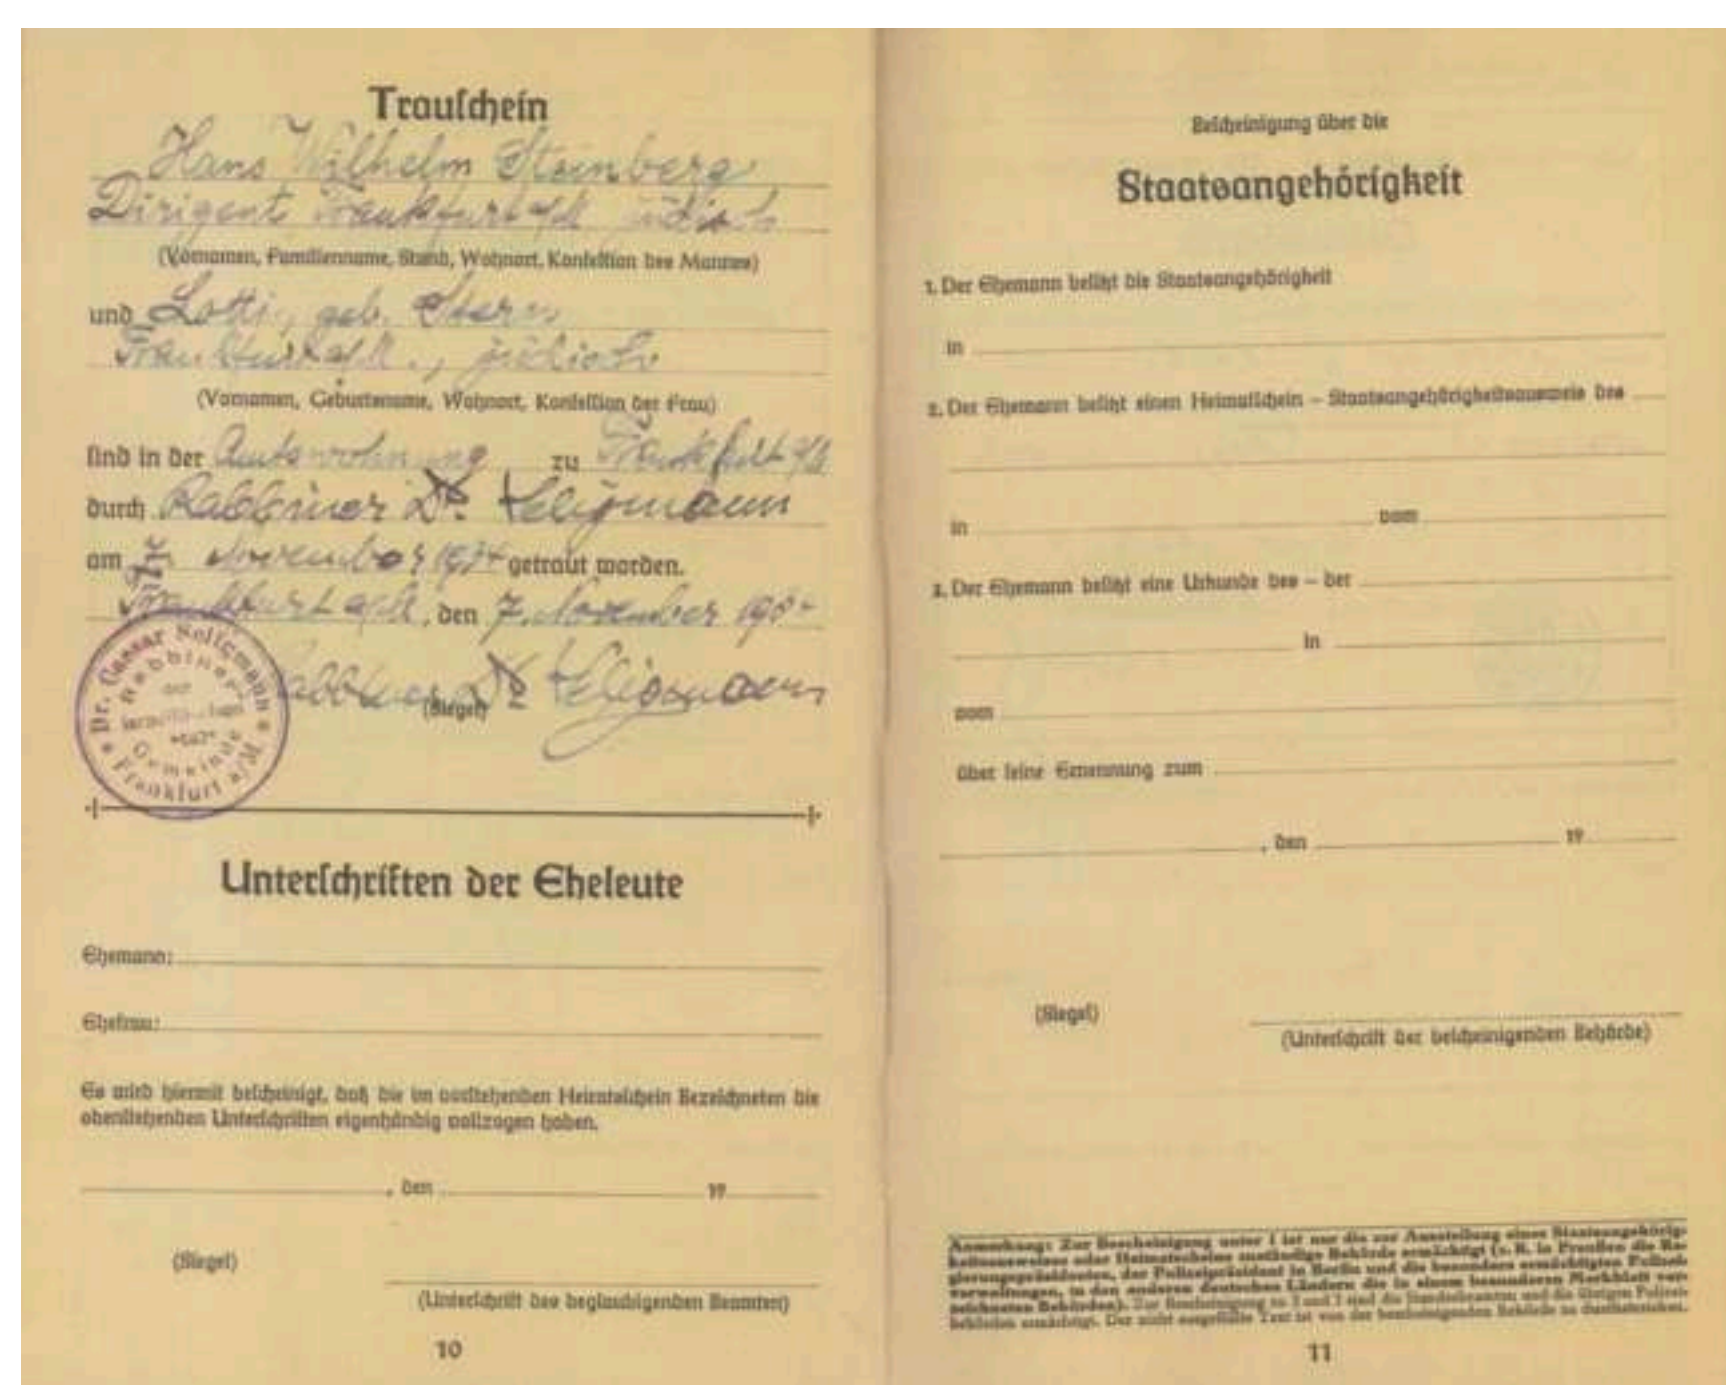 Trauschein
Hans Wilhelm Steinberg
Dirigent Frankfurt a/M jüdisch
(Vornamen, Familienname, Stand, Wohnort, Konfession des Mannes)
und Lotti, geb. Stern
Frankfurt a/M., jüdisch
(Vornamen, Geburtsname, Wohnort, Konfession der Frau)
sind in der Amtswohnung zu Frankfurt a/M
durch Rabbiner Dr. Seligmann
am 7. November 1934 getraut worden.
Frankfurt a/M, den 7. November 1934
Rabbiner Dr. Seligmann
(Siegel)
Dr. Caesar Seligmann
Rabbiner
der
Gemeinde
Frankfurt a/M
Unterschriften der Eheleute
Ehemann:
Ehefrau:
Es wird hiermit bescheinigt, daß die im vorstehenden Heiratsschein Bezeichneten die
obenstehenden Unterschriften eigenhändig vollzogen haben.
, den 19
(Siegel)
(Unterschrift des beglaubigenden Beamten)
10
Bescheinigung über die
Staatsangehörigkeit
1. Der Ehemann besitzt die Staatsangehörigkeit
in
2. Der Ehemann besitzt einen Heimatschein – Staatsangehörigkeitsausweis des
in vom
3. Der Ehemann besitzt eine Urkunde des – der
in
vom
über seine Ernennung zum
, den 19
(Siegel)
(Unterschrift der bescheinigenden Behörde)
Anmerkung: Zur Bescheinigung unter 1 ist nur die zur Ausstellung eines Staatsangehörig-
keitsausweises oder Heimatscheins zuständige Behörde ermächtigt (z. B. in Preußen die Re-
gierungspräsidenten, der Polizeipräsident in Berlin und die besonders ermächtigten Polizei-
verwaltungen, in den anderen deutschen Ländern die in einem besonderen Merkblatt ver-
zeichneten Behörden). Zur Bescheinigung zu 2 und 3 sind die Standesbeamten und die übrigen Polizei-
behörden ermächtigt. Der nicht ausgefüllte Text ist von der bescheinigenden Behörde zu durchstreichen.
11